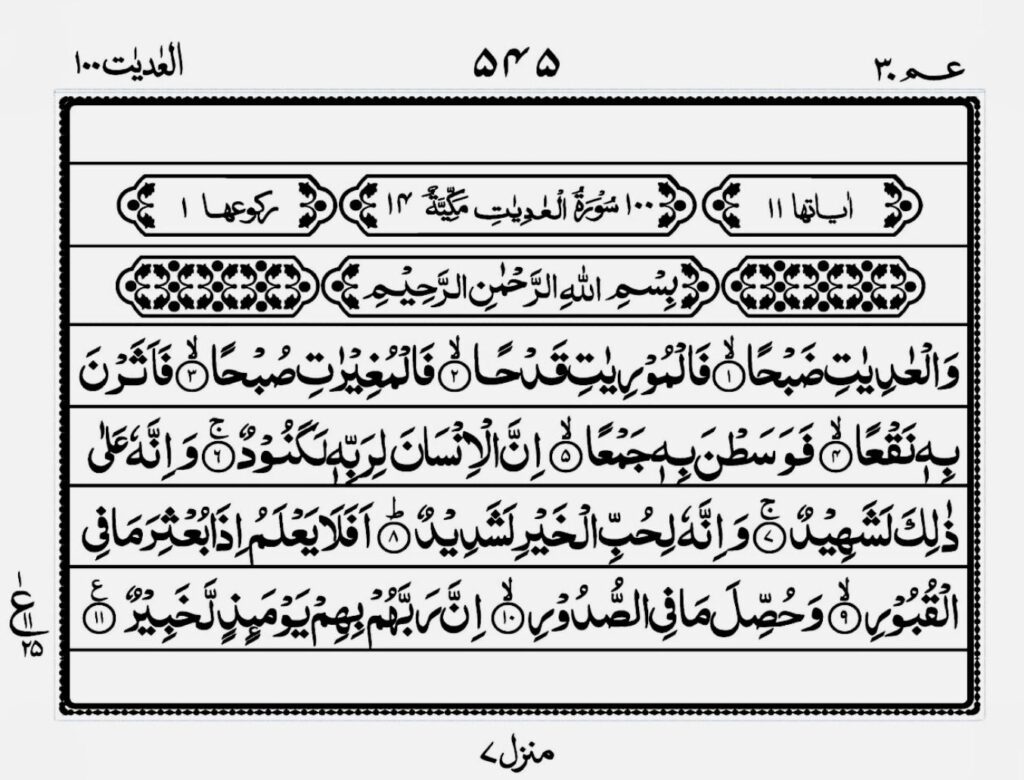 عـم ٣٠ ۵۴۵ العٰدیٰت ١٠٠
اٰیاتها ١١ ١٠٠ سُوْرَةُ الْعٰدِیٰتِ مَكِّیَّةٌ ١۴ ركوعها ١
بِسْمِ اللهِ الرَّحْمٰنِ الرَّحِیْمِ
وَالْعٰدِیٰتِ ضَبْحًا ۙ﴿١﴾ فَالْمُوْرِیٰتِ قَدْحًا ۙ﴿٢﴾ فَالْمُغِیْرٰتِ صُبْحًا ۙ﴿٣﴾ فَاَثَرْنَ
بِهٖ نَقْعًا ۙ﴿۴﴾ فَوَسَطْنَ بِهٖ جَمْعًا ۙ﴿۵﴾ اِنَّ الْاِنْسَانَ لِرَبِّهٖ لَكَنُوْدٌ ۚ﴿۶﴾ وَاِنَّهٗ عَلٰی
ذٰلِكَ لَشَهِیْدٌ ۚ﴿۷﴾ وَاِنَّهٗ لِحُبِّ الْخَیْرِ لَشَدِیْدٌ ؕ﴿۸﴾ اَفَلَا یَعْلَمُ اِذَا بُعْثِرَ مَا فِی
الْقُبُوْرِ ۙ﴿۹﴾ وَحُصِّلَ مَا فِی الصُّدُوْرِ ۙ﴿١٠﴾ اِنَّ رَبَّهُمْ بِهِمْ یَوْمَىِٕذٍ لَّخَبِیْرٌ ﴿١١﴾ ع
١
ع
١١
٢۵
منزل ۷